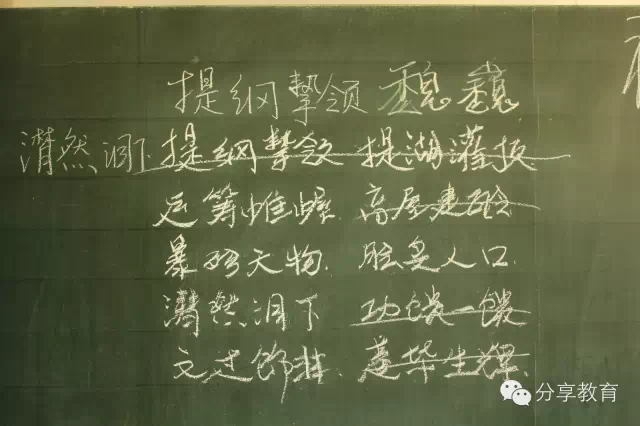 提纲挈领 魏 巍
潸然泪下 提纲挈领 提湖灌顶
运筹帷幄 高屋建
暴殄天物 脍炙人口
潸然泪下 功馈一馈
文过饰非 蓬华生辉
分享教育